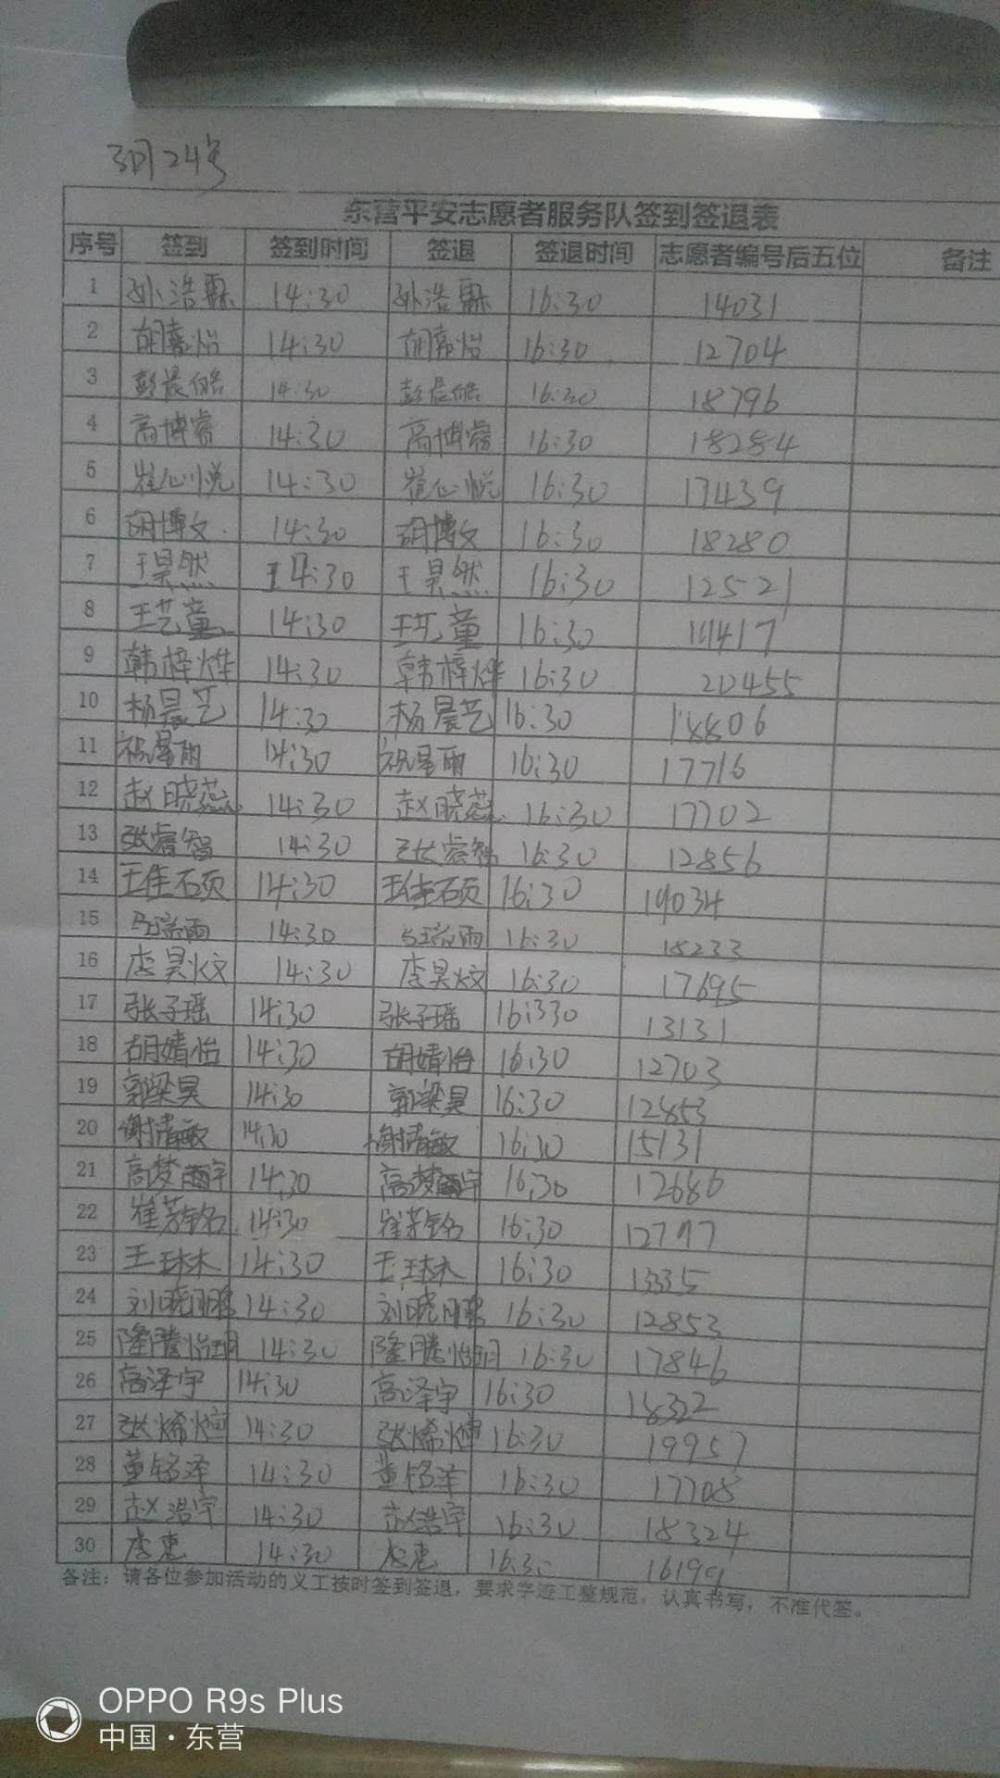 3月24号
东营平安志愿者服务队签到签退表
序号 签到 签到时间 签退 签退时间 志愿者编号后五位 备注
1 孙浩霖 14:30 孙浩霖 16:30 14031
2 胡嘉怡 14:30 胡嘉怡 16:30 12704
3 彭晨皓 14:30 彭晨皓 16:30 18796
4 高博睿 14:30 高博睿 16:30 18284
5 崔心悦 14:30 崔心悦 16:30 17439
6 胡博文 14:30 胡博文 16:30 18280
7 王昊然 14:30 王昊然 16:30 12521
8 王艺童 14:30 王艺童 16:30
9 韩梓烨 14:30 韩梓烨 16:30 20455
10 杨晨艺 14:30 杨晨艺 16:30 18806
11 祝星雨 14:30 祝星雨 16:30 17716
12 赵晓蕊 14:30 赵晓蕊 16:30 17702
13 张睿智 14:30 张睿智 16:30 12856
14 王佳硕 14:30 王佳硕 16:30 19034
15 马瑞雨 14:30 马瑞雨 16:30 18233
16 李昊炆 14:30 李昊炆 16:30 17695
17 张子瑶 14:30 张子瑶 16:330 13131
18 胡婧怡 14:30 胡婧怡 16:30 12703
19 郭梁昊 14:30 郭梁昊 16:30 12853
20 谢清敏 14:30 谢清敏 16:30 15131
21 高梦宇 14:30 高梦宇 16:30 12686
22 崔芳铭 14:30 崔芳铭 16:30 12797
23 王琳 14:30 王琳 16:30 13335
24 刘晓 14:30 刘晓 16:30 12853
25 隆腾怡玥 14:30 隆腾怡玥 16:30 17846
26 高泽宇 14:30 高泽宇 16:30 18322
27 张烯煊 14:30 张烯煊 16:30 19957
28 董铭泽 14:30 董铭泽 16:30 17708
29 赵浩宇 14:30 赵浩宇 16:30 18324
30 李惠 14:30 李惠 16:30 16199
备注：请各位参加活动的义工按时签到签退，要求字迹工整规范，认真书写，不准代签。
OPPO R9s Plus
中国·东营